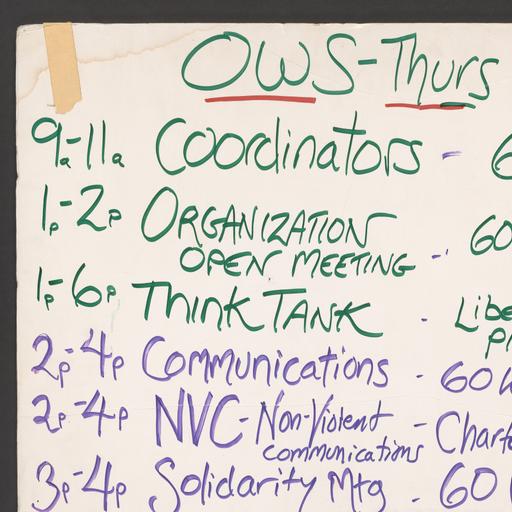 OWS-Thurs
9a-11a Coordinators - 6
1p-2p ORGANIZATION
OPEN MEETING - 60
1p-6p Think TANK - Libe
2p-4p Communications - 60
2p-4p NVC - Non-Violent
communications - Chart
3p-4p Solidarity Mtg - 60